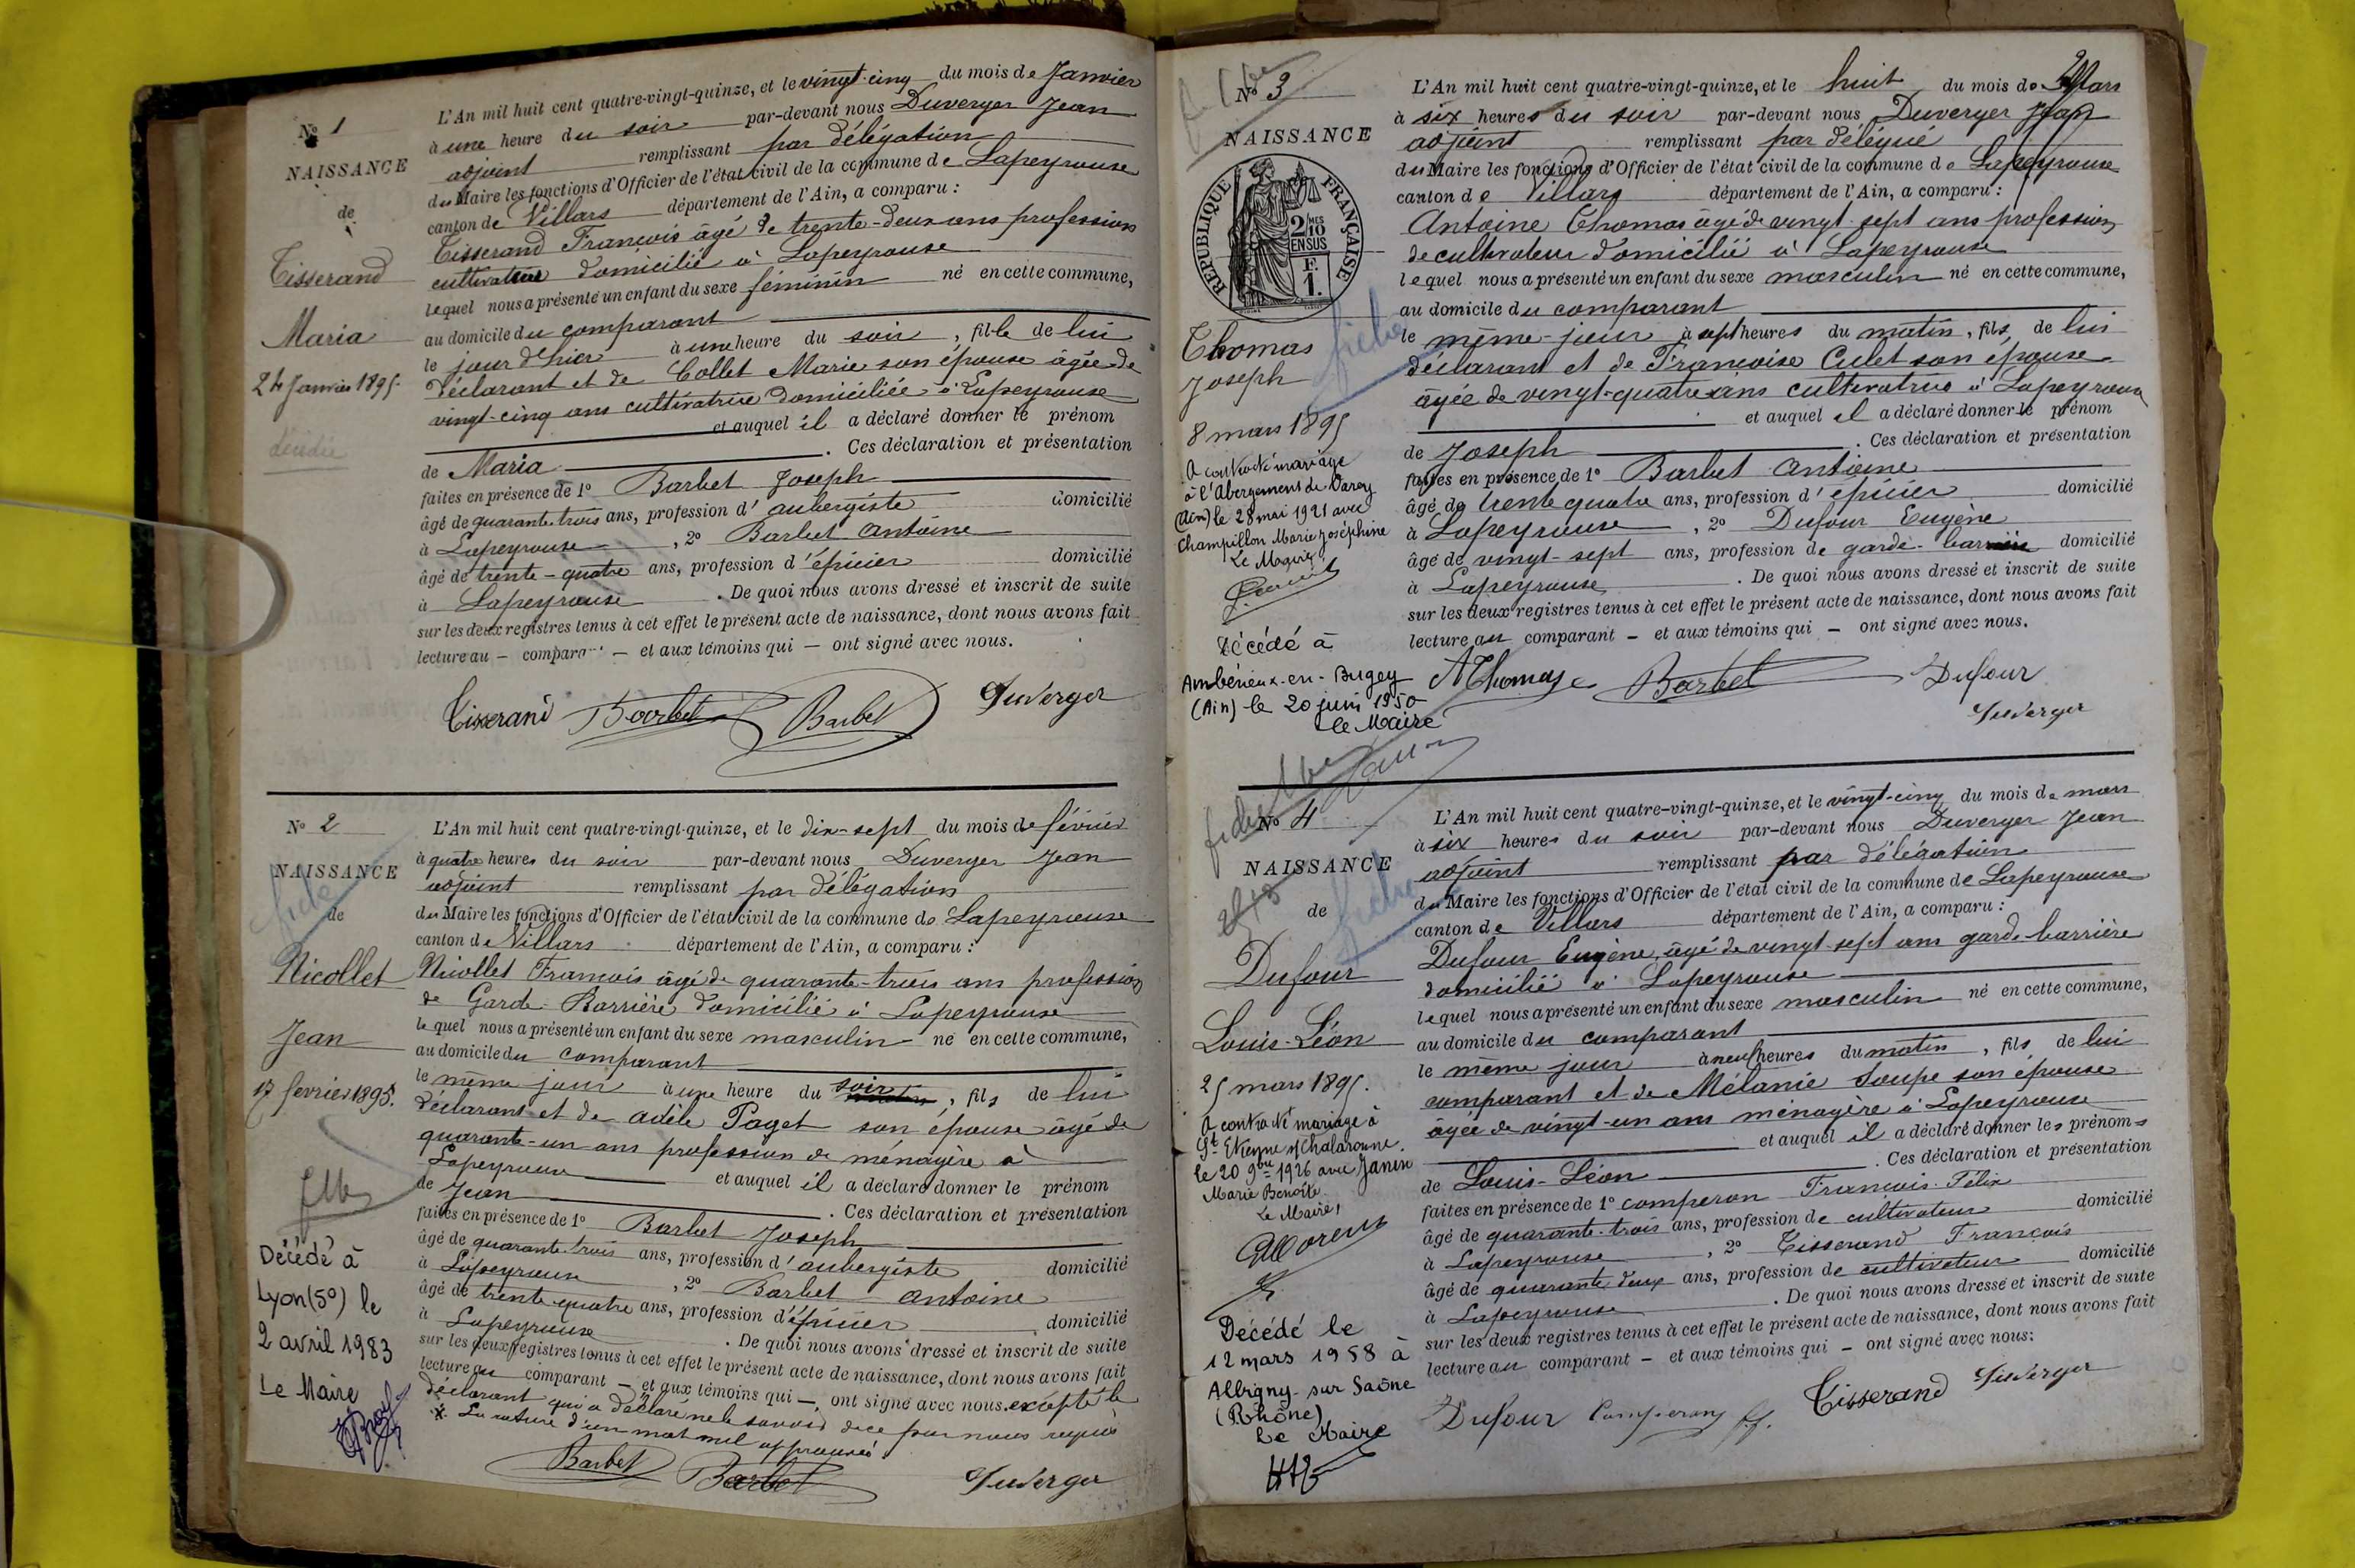 Nº 1
NAISSANCE
de
Tisserand
Maria
24 Janvier 1895.
décédée
L'An mil huit cent quatre-vingt-quinze, et le vingt-cinq du mois de Janvier
à une heure du soir par-devant nous Duverger Jean
adjoint remplissant par délégation
du Maire les fonctions d'Officier de l'état civil de la commune de Lapeyrouse
canton de Villars département de l'Ain, a comparu :
Tisserand François âgé de trente-deux ans profession
cultivateur domicilié à Lapeyrouse
lequel nous a présenté un enfant du sexe féminin né en cette commune,
au domicile du comparant
le jour d'hier à une heure du soir, fille de lui
déclarant et de Collet Marie son épouse âgée de
vingt-cinq ans cultivatrice domiciliée à Lapeyrouse
et auquel il a déclaré donner le prénom
de Maria . Ces déclaration et présentation
faites en présence de 1º Barbet Joseph
âgé de quarante-trois ans, profession d'aubergiste domicilié
à Lapeyrouse , 2º Barbet Antoine
âgé de trente-quatre ans, profession d'épicier domicilié
à Lapeyrouse . De quoi nous avons dressé et inscrit de suite
sur les deux registres tenus à cet effet le présent acte de naissance, dont nous avons fait
lecture au – comparant – et aux témoins qui – ont signé avec nous.
Tisserand Barbet Barbet Duverger
Nº 2
NAISSANCE
fiche
de
Nicollet
Jean
17 fevrier 1895.
Décédé à
Lyon (5º) le
2 avril 1983
Le Maire
L'An mil huit cent quatre-vingt-quinze, et le dix-sept du mois de février
à quatre heures du soir par-devant nous Duverger Jean
adjoint remplissant par délégation
du Maire les fonctions d'Officier de l'état civil de la commune de Lapeyrouse
canton de Villars département de l'Ain, a comparu :
Nicollet François âgé de quarante-trois ans profession
de Garde-Barrière domicilié à Lapeyrouse
lequel nous a présenté un enfant du sexe masculin né en cette commune,
au domicile du comparant
le même jour à une heure du soir, fils de lui
déclarant et de Adèle Paget son épouse âgé de
quarante-un ans profession de ménagère à
Lapeyrouse et auquel il a déclaré donner le prénom
de Jean . Ces déclaration et présentation
faites en présence de 1º Barbet Joseph
âgé de quarante-trois ans, profession d'aubergiste domicilié
à Lapeyrouse , 2º Barbet Antoine
âgé de trente quatre ans, profession d'épicier domicilié
à Lapeyrouse . De quoi nous avons dressé et inscrit de suite
sur les deux registres tenus à cet effet le présent acte de naissance, dont nous avons fait
lecture au comparant – et aux témoins qui –, ont signé avec nous. excepté le
déclarant qui a déclaré ne le savoir de ce par nous requis
* La rature d'un mot nul approuvée
Barbet Barbet Duverger
2
Nº 3
NAISSANCE
RÉPUBLIQUE FRANÇAISE
2 MES
10
EN SUS
F.
1.
Thomas
Joseph
fiche
8 mars 1895
A contracté mariage
à l'Abergement de Varey
(Ain) le 28 mai 1921 avec
Champillon Marie Joséphine
Le Maire,
Décédé à
Ambérieux-en-Bugey
(Ain) le 20 juin 1950
le Maire
L'An mil huit cent quatre-vingt-quinze, et le huit du mois de Mars
à six heures du soir par-devant nous Duverger Jean
adjoint remplissant par délégué
du Maire les fonctions d'Officier de l'état civil de la commune de Lapeyrouse
canton de Villars département de l'Ain, a comparu :
Antoine Thomas âgé de vingt-sept ans profession
de cultivateur domicilié à Lapeyrouse
lequel nous a présenté un enfant du sexe masculin né en cette commune,
au domicile du comparant
le même jour à sept heures du matin, fils de lui
déclarant et de Françoise Culet son épouse
âgée de vingt-quatre ans cultivatrice à Lapeyrouse
et auquel il a déclaré donner le prénom
de Joseph . Ces déclaration et présentation
faites en présence de 1º Barbet Antoine
âgé de trente quatre ans, profession d'épicier domicilié
à Lapeyrouse , 2º Dufour Eugène
âgé de vingt-sept ans, profession de garde-barrière domicilié
à Lapeyrouse . De quoi nous avons dressé et inscrit de suite
sur les deux registres tenus à cet effet le présent acte de naissance, dont nous avons fait
lecture au comparant – et aux témoins qui – ont signé avec nous.
AThomas Barbet Dufour
Duverger
fiche
Nº 4
NAISSANCE
de
Dufour
Louis-Léon
25 mars 1895.
A contracté mariage à
St Etienne s/Chalaronne.
le 20 9bre 1926 avec Janin
Marie Benoîte
Le Maire,
Décédé le
12 mars 1958 à
Albigny-sur-Saône
(Rhône)
Le Maire
L'An mil huit cent quatre-vingt-quinze, et le vingt-cinq du mois de mars
à six heures du soir par-devant nous Duverger Jean
adjoint remplissant par délégation
du Maire les fonctions d'Officier de l'état civil de la commune de Lapeyrouse
canton de Villars département de l'Ain, a comparu :
Dufour Eugène, âgé de vingt-sept ans garde barrière
domicilié à Lapeyrouse
lequel nous a présenté un enfant du sexe masculin né en cette commune,
au domicile du comparant
le même jour à neuf heures du matin, fils de lui
comparant et de Mélanie Soupe son épouse
âgée de vingt-un ans ménagère à Lapeyrouse
et auquel il a déclaré donner les prénoms
de Louis-Léon . Ces déclaration et présentation
faites en présence de 1º Comperon François-Félix
âgé de quarante-trois ans, profession de cultivateur domicilié
à Lapeyrouse , 2º Tisserand François
âgé de quarante deux ans, profession de cultivateur domicilié
à Lapeyrouse . De quoi nous avons dressé et inscrit de suite
sur les deux registres tenus à cet effet le présent acte de naissance, dont nous avons fait
lecture au comparant – et aux témoins qui – ont signé avec nous:
Dufour Comperon ff. Tisserand Duverger